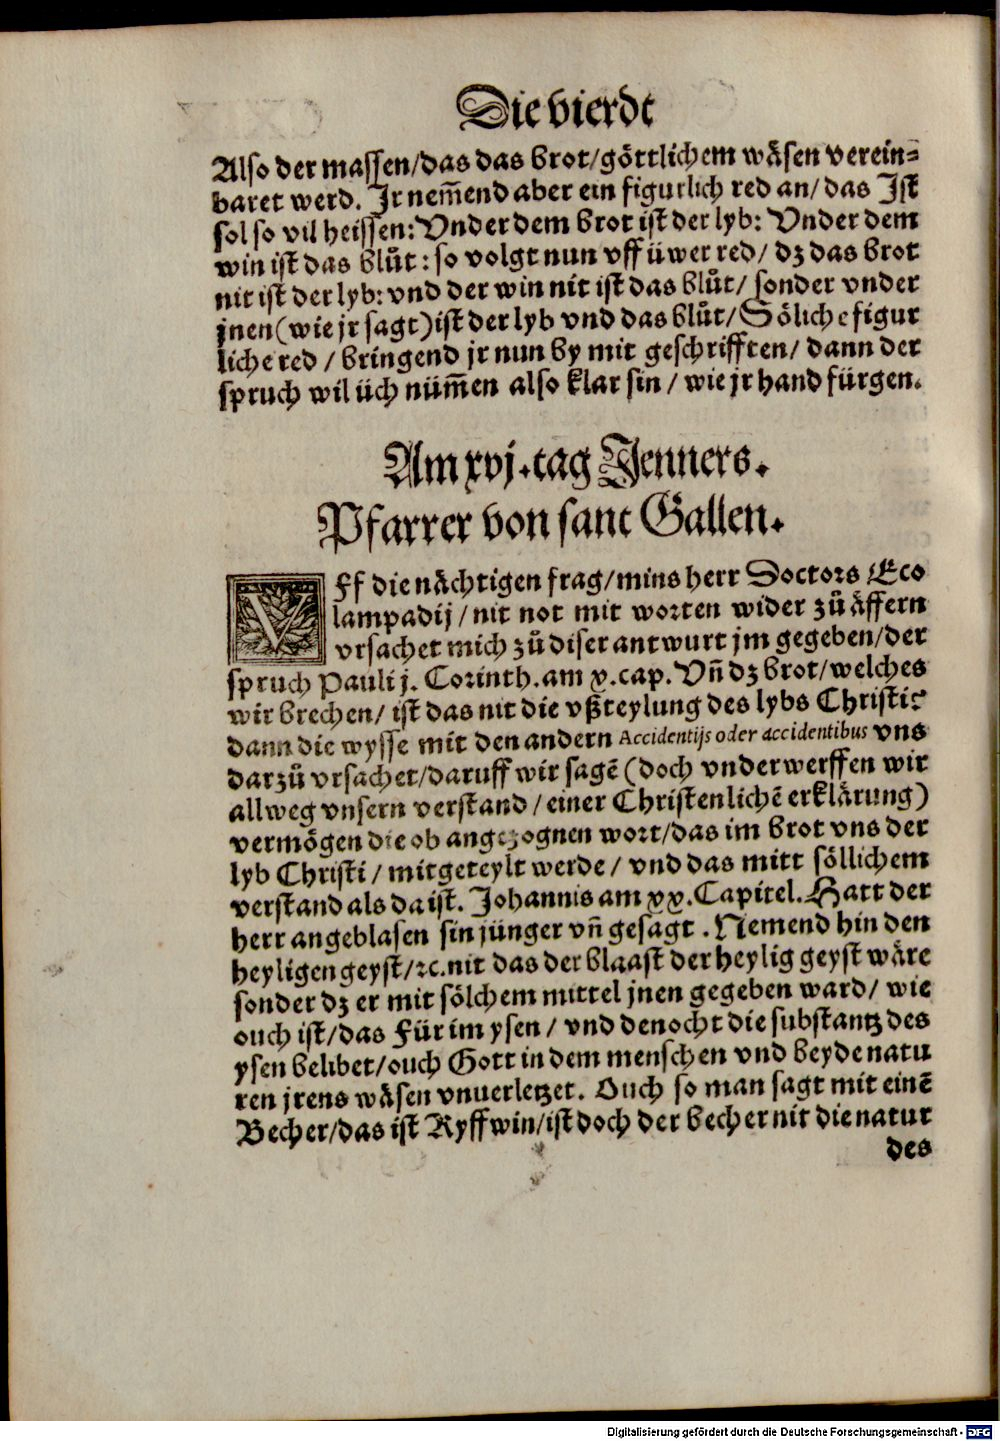 Die vierdt
Also der massen/das das brot/göttlichem wäsen verein⸗
baret werd. Ir nem̃end aber ein figurlich red an/das Ist
sol so vil heissen: Vnder dem brot ist der lyb: Vnder dem
win ist das blůt: so volgt nun vff üwer red/ dz das brot
nit ist der lyb: vnd der win nit ist das blůt/ sonder vnder
jnen (wie jr sagt) ist der lyb vnd das blůt/ Söliche figur
liche red / bringend jr nun by mit geschrifften/ dann der
spruch wil üch nüm̃en also klar sin / wie jr hand fürgen.
Am xvj. tag Jenners.
Pfarrer von sant Gallen.
VFf die nächtigen frag/mins herr Doctors Eco
lampadij / nit not mit worten wider zů äffern
vrsachet mich zů diser antwurt jm gegeben/der
spruch Pauli j. Corinth. am x. cap. Vn̄ dz brot/welches
wir brechen/ ist das nit die vßteylung des lybs Christi?
dann die wysse mit den andern Accidentijs oder accidentibus vns
darzů vrsachet/daruff wir sagē (doch vnderwerffen wir
allweg vnsern verstand / einer Christenlichē erklärung)
vermögen die ob angezognen wort/das im brot vns der
lyb Christi / mitgeteylt werde / vnd das mitt söllichem
verstand als da ist. Johannis am xx. Capitel. Hatt der
herr angeblasen sin jünger vn̄ gesagt . Nemend hin den
heyligen geyst/ꝛc. nit das der blaast der heylig geyst wäre
sonder dz er mit sölchem mittel jnen gegeben ward/ wie
ouch ist/das Für im ysen / vnd denocht die substantz des
ysen belibet/ouch Gott in dem menschen vnd beyde natu
ren jrens wäsen vnuerletzet. Ouch so man sagt mit einē
Becher/das ist Ryffwin/ist doch der becher nit die natur
des
Digitalisierung gefördert durch die Deutsche Forschungsgemeinschaft - DFG